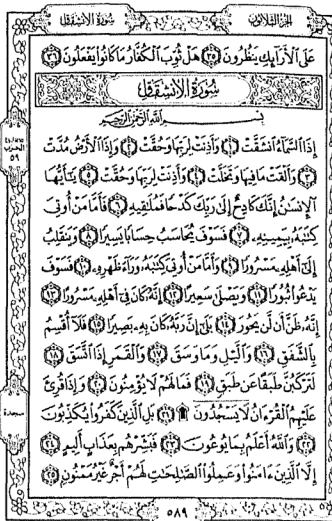 سُورَةُ الانشِقَاقِ
الجُزْءُ الثَّلَاثُونَ
عَلَى ٱلْأَرَآئِكِ يَنظُرُونَ ٣٥ هَلْ ثُوِّبَ ٱلْكُفَّارُ مَا كَانُوا۟ يَفْعَلُونَ ٣٦
سُورَةُ الانشِقَاقِ
بِسْمِ ٱللَّهِ ٱلرَّحْمَٰنِ ٱلرَّحِيمِ
إِذَا ٱلسَّمَآءُ ٱنشَقَّتْ ١ وَأَذِنَتْ لِرَبِّهَا وَحُقَّتْ ٢ وَإِذَا ٱلْأَرْضُ مُدَّتْ
٣ وَأَلْقَتْ مَا فِيهَا وَتَخَلَّتْ ٤ وَأَذِنَتْ لِرَبِّهَا وَحُقَّتْ ٥ يَٰٓأَيُّهَا
ٱلْإِنسَٰنُ إِنَّكَ كَادِحٌ إِلَىٰ رَبِّكَ كَدْحًا فَمُلَٰقِيهِ ٦ فَأَمَّا مَنْ أُوتِىَ
كِتَٰبَهُۥ بِيَمِينِهِۦ ٧ فَسَوْفَ يُحَاسَبُ حِسَابًا يَسِيرًا ٨ وَيَنقَلِبُ
إِلَىٰٓ أَهْلِهِۦ مَسْرُورًا ٩ وَأَمَّا مَنْ أُوتِىَ كِتَٰبَهُۥ وَرَآءَ ظَهْرِهِۦ ١٠ فَسَوْفَ
يَدْعُوا۟ ثُبُورًا ١١ وَيَصْلَىٰ سَعِيرًا ١٢ إِنَّهُۥ كَانَ فِىٓ أَهْلِهِۦ مَسْرُورًا ١٣
إِنَّهُۥ ظَنَّ أَن لَّن يَحُورَ ١٤ بَلَىٰٓ إِنَّ رَبَّهُۥ كَانَ بِهِۦ بَصِيرًا ١٥ فَلَآ أُقْسِمُ
بِٱلشَّفَقِ ١٦ وَٱلَّيْلِ وَمَا وَسَقَ ١٧ وَٱلْقَمَرِ إِذَا ٱتَّسَقَ ١٨
لَتَرْكَبُنَّ طَبَقًا عَن طَبَقٍ ١٩ فَمَا لَهُمْ لَا يُؤْمِنُونَ ٢٠ وَإِذَا قُرِئَ
عَلَيْهِمُ ٱلْقُرْءَانُ لَا يَسْجُدُونَ ۩ ٢١ بَلِ ٱلَّذِينَ كَفَرُوا۟ يُكَذِّبُونَ
٢٢ وَٱللَّهُ أَعْلَمُ بِمَا يُوعُونَ ٢٣ فَبَشِّرْهُم بِعَذَابٍ أَلِيمٍ ٢٤
إِلَّا ٱلَّذِينَ ءَامَنُوا۟ وَعَمِلُوا۟ ٱلصَّٰلِحَٰتِ لَهُمْ أَجْرٌ غَيْرُ مَمْنُونٍ ٢٥
الحزب
٥٩
سجدة
٥٨٩